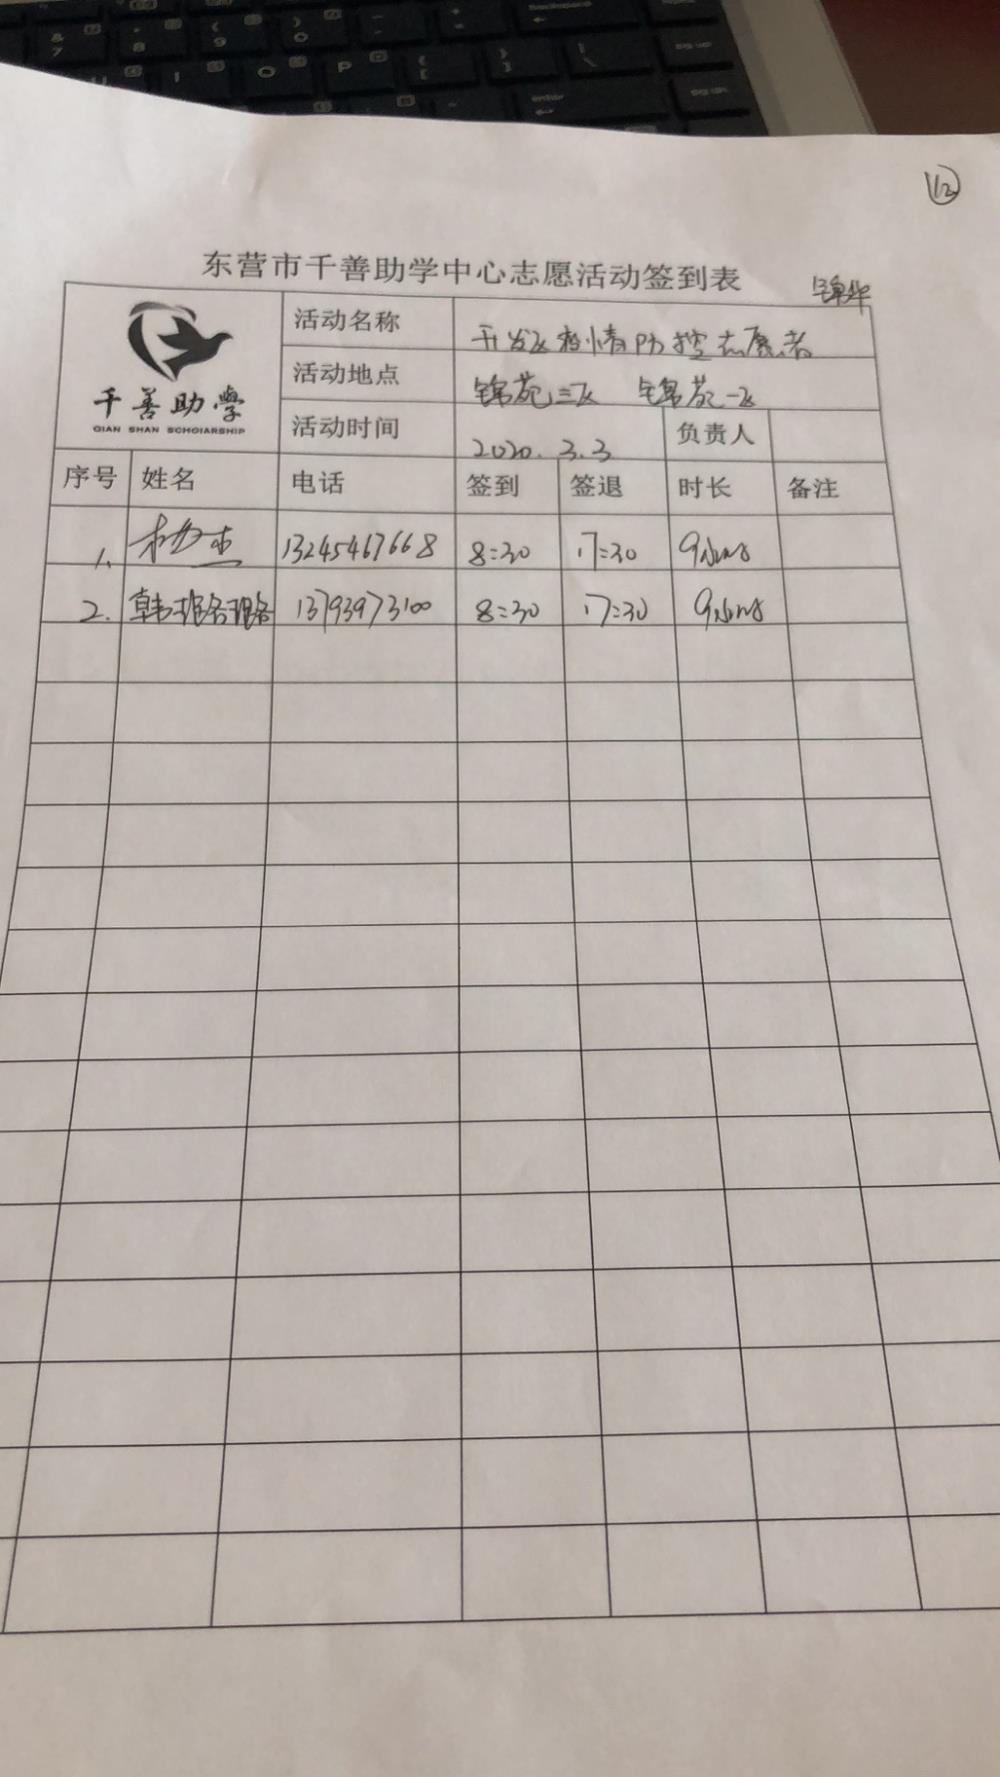 12
东营市千善助学中心志愿活动签到表
锦华
千善助学
QIAN SHAN SCHOIARSHIP
活动名称 开发区疫情防控志愿者
活动地点 锦苑三区 锦苑一区
活动时间 2020.3.3 负责人
序号 姓名 电话 签到 签退 时长 备注
1. 杰 13245467668 8:30 17:30 9小时
2. 韩璐璐 13793973100 8:30 17:30 9小时